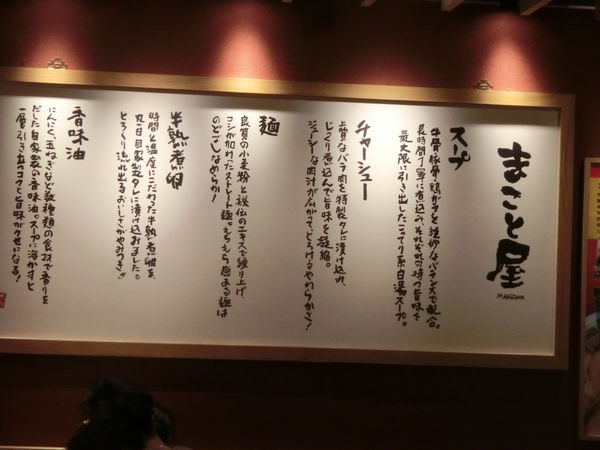 まこと屋
MAKOTOYA
スープ
牛骨、豚骨、鶏ガラを絶妙なバランスで配合。
長時間丁寧に煮込み、それぞれの持つ旨味を
最大限に引き出したこってり系白湯スープ。
チャーシュー
上質なバラ肉を特製タレに漬け込み、
じっくり煮込んで旨味を凝縮。
ジューシーな肉汁が広がって、とろけるやわらかさ！
麺
良質の小麦粉と秘伝のエキスで練り上げ、
コシが加わったストレート麺。もちもち感ある麺は
のどごしなめらか！
半熟煮卵
時間と温度にこだわった半熟煮卵を、
丸一日自家製タレに漬け込みました。
とろりと流れ出るおいしさがやみつき!!
香味油
にんにく、玉ねぎなど数種類の食材で香りを
だした自家製の香味油。スープに溶かすと
一層引き立つコクと旨味がクセになる！